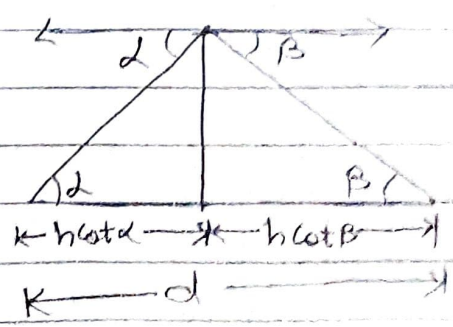 α β
α β
h cot α h cot β
d